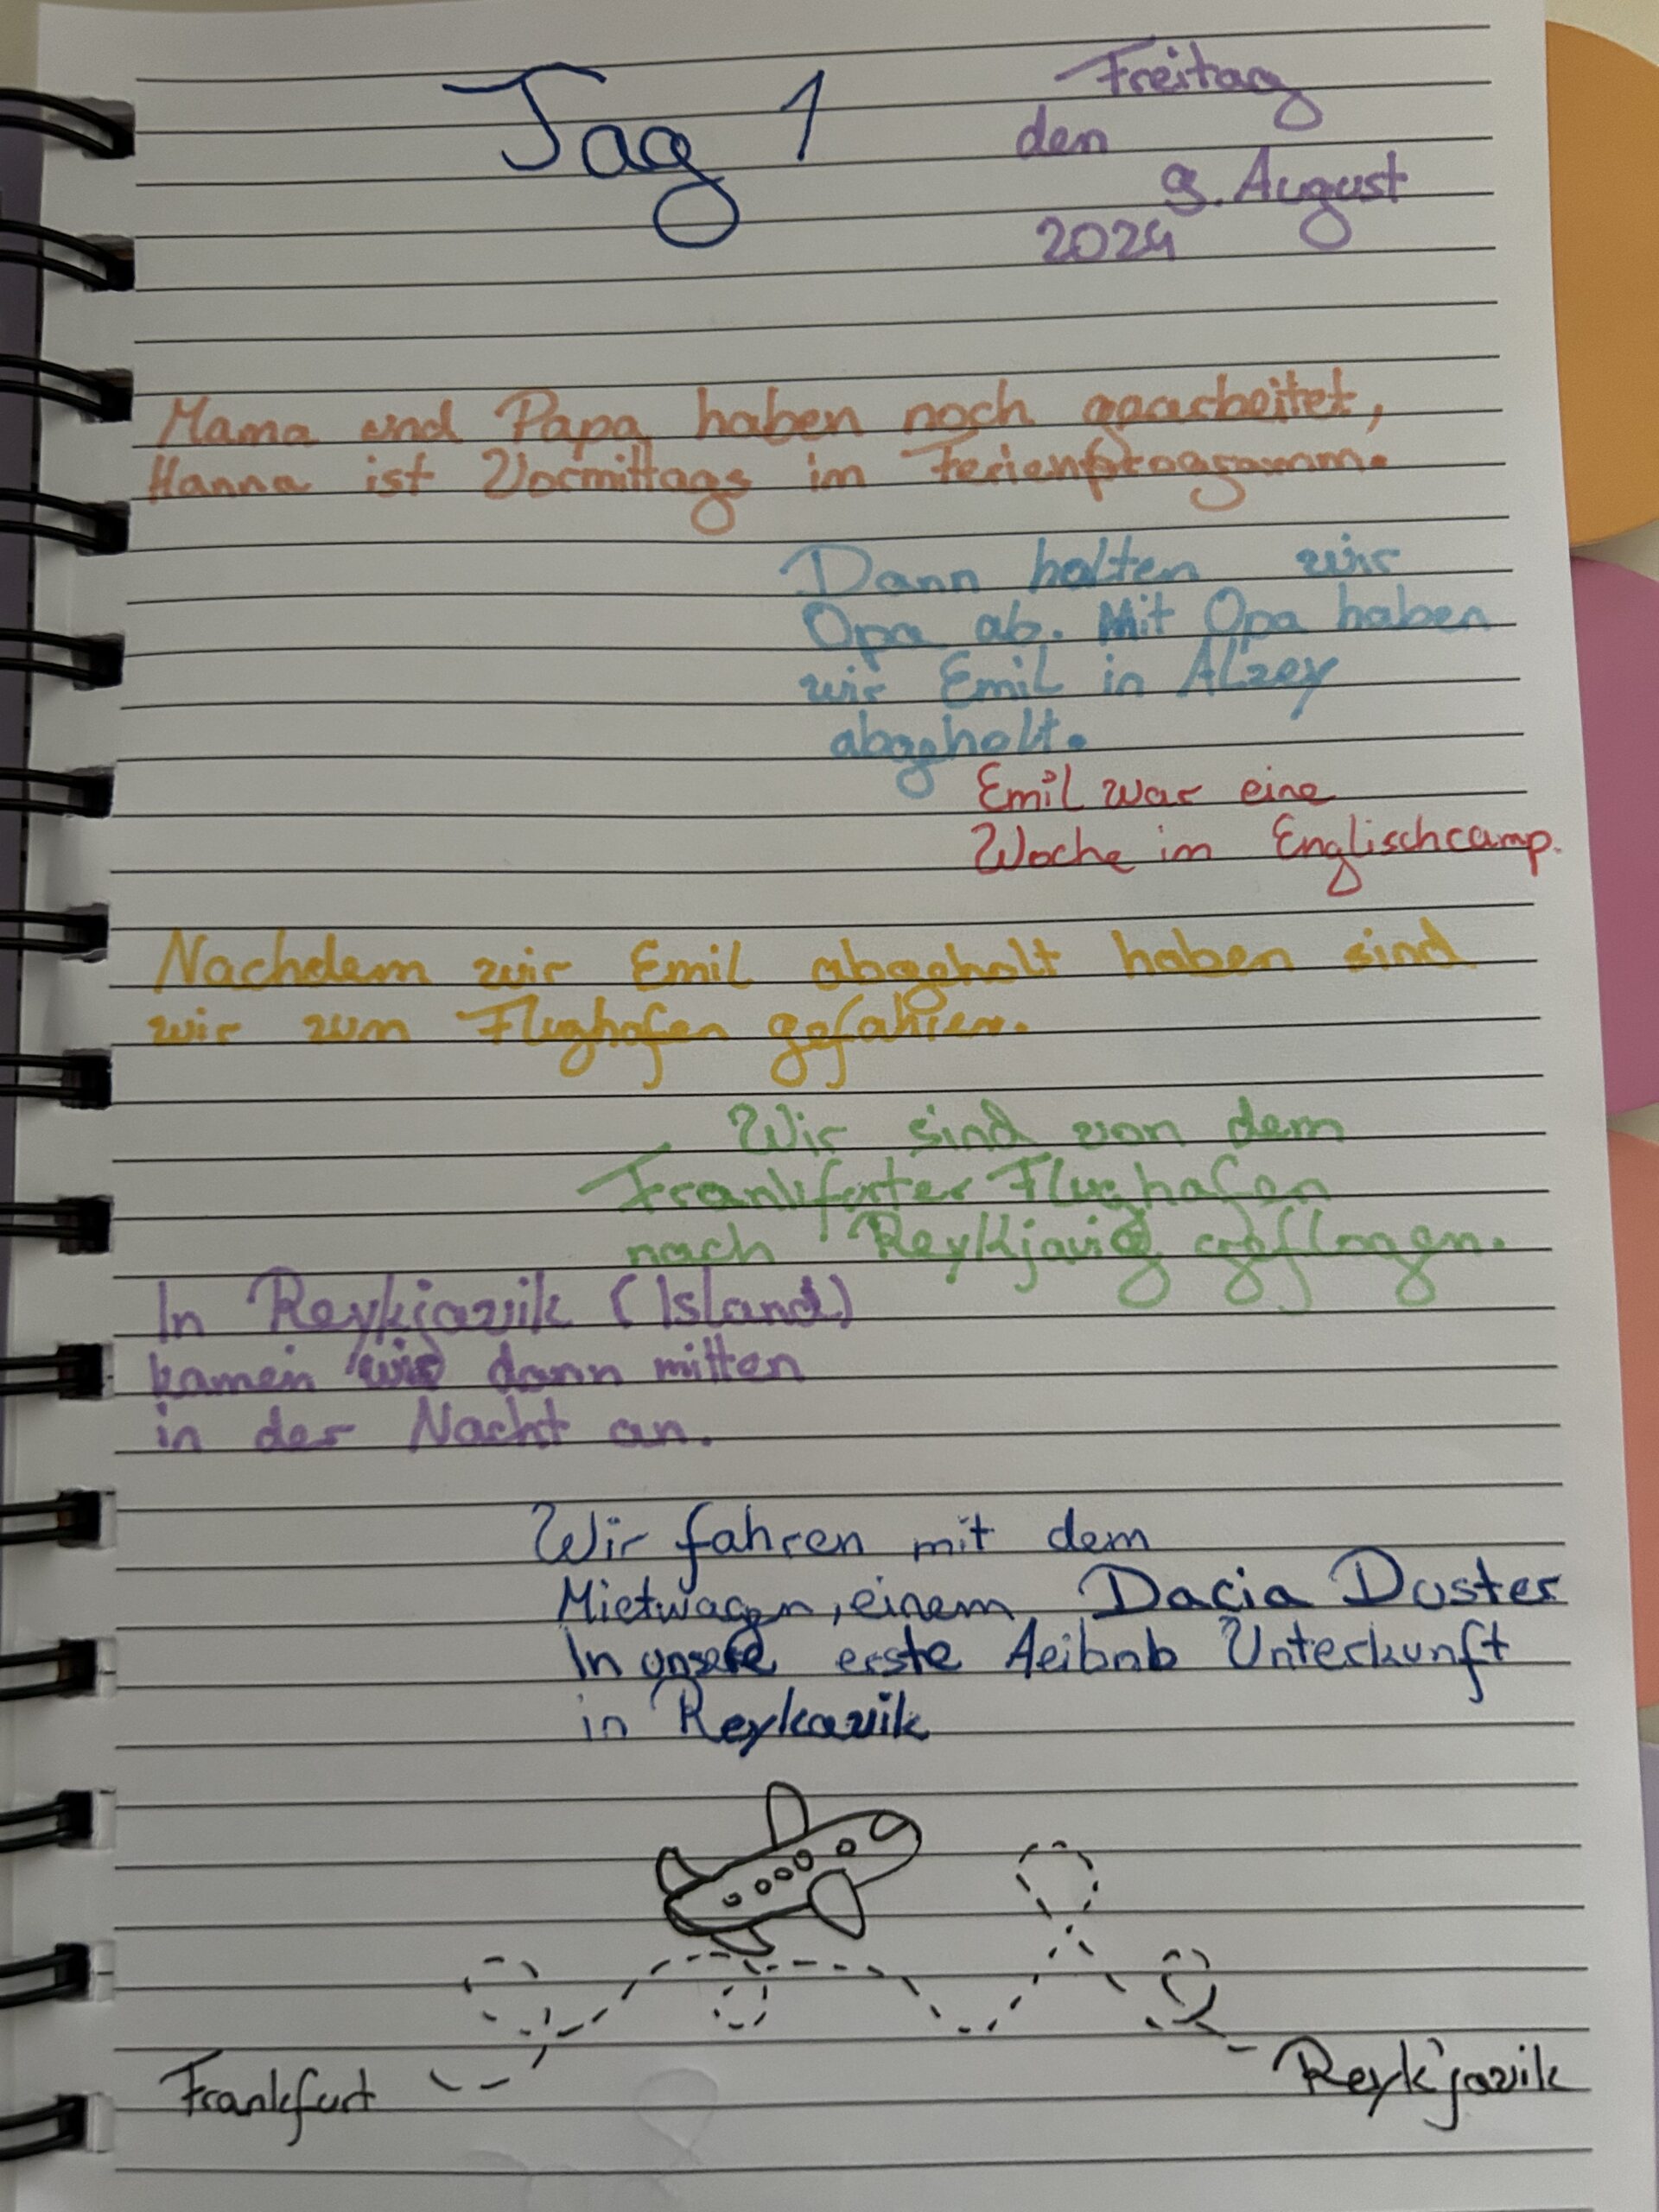 Tag 1
Freitag
den
9. August
2024
Mama und Papa haben noch gearbeitet,
Hanna ist Vormittags im Ferienprogramm.
Dann holten wir
Opa ab. Mit Opa haben
wir Emil in Alzey
abgeholt.
Emil war eine
Woche im Englischcamp.
Nachdem wir Emil abgeholt haben sind
wir zum Flughafen gefahren.
Wir sind von dem
Frankfurter Flughafen
nach Reykjavig geflogen.
In Reykjavik (Island)
kamen wir dann mitten
in der Nacht an.
Wir fahren mit dem
Mietwagen, einem Dacia Duster
In unsere erste Aeibnb Unterkunft
in Reykavik
Frankfurt
Reyk'javik